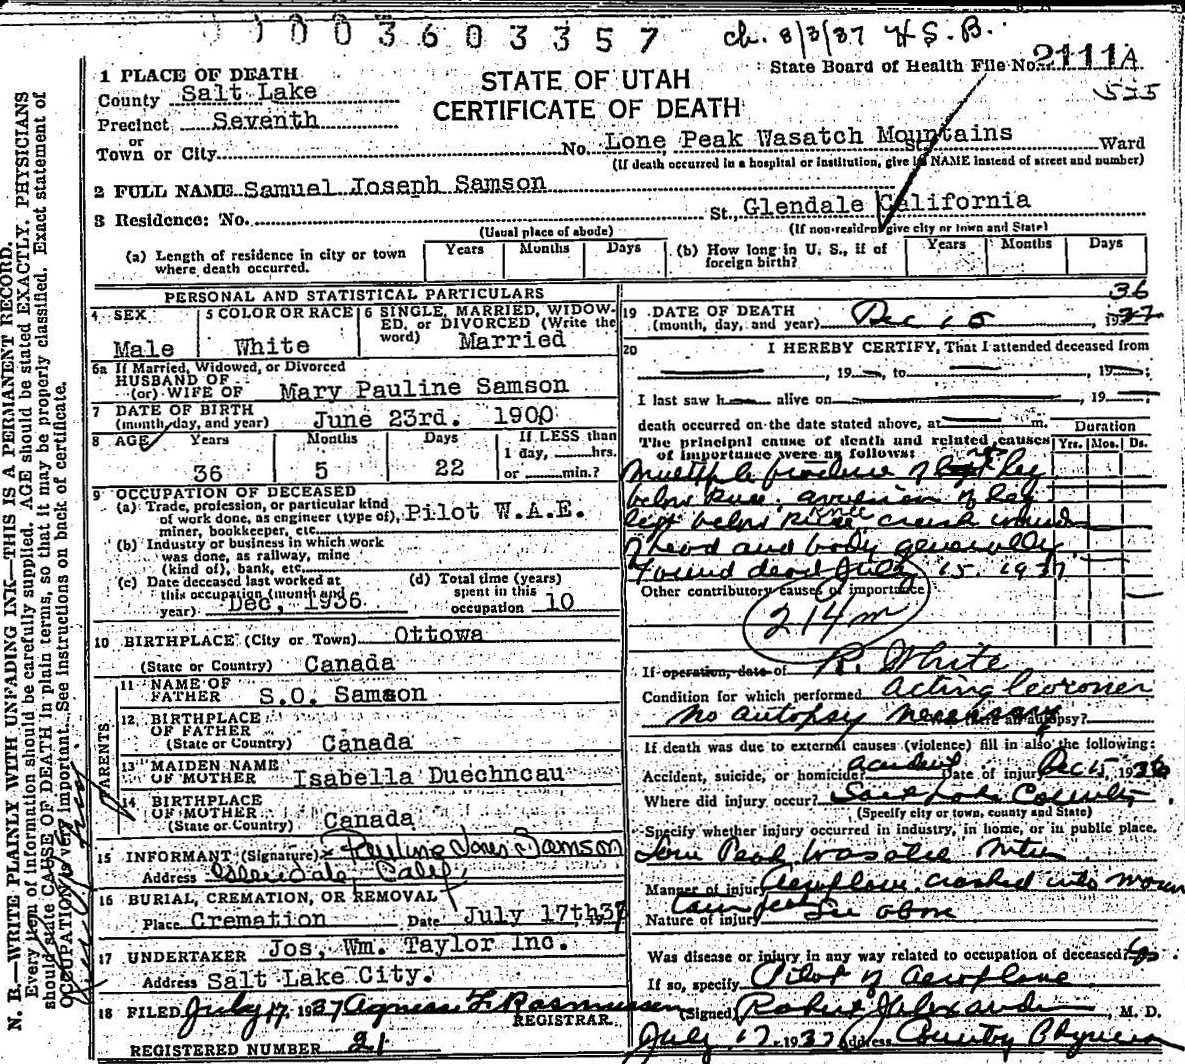 1003603357
ch. 8/3/37 H. S. B.
State Board of Health File No. 2111A
525
STATE OF UTAH
CERTIFICATE OF DEATH
1 PLACE OF DEATH
County Salt Lake
Precinct Seventh
or
Town or City
No. Lone Peak Wasatch Mountains Ward
(If death occurred in a hospital or institution, give its NAME instead of street and number)
2 FULL NAME Samuel Joseph Samson
3 Residence: No. St., Glendale California
(Usual place of abode) (If non-resident give city or town and State)
(a) Length of residence in city or town where death occurred. Years Months Days
(b) How long in U. S., if of foreign birth? Years Months Days
PERSONAL AND STATISTICAL PARTICULARS
4 SEX Male
5 COLOR OR RACE White
6 SINGLE, MARRIED, WIDOWED, or DIVORCED (Write the word) Married
6a If Married, Widowed, or Divorced
HUSBAND OF
(or) WIFE OF Mary Pauline Samson
7 DATE OF BIRTH
(month, day, and year) June 23rd. 1900
8 AGE Years Months Days If LESS than
1 day, hrs.
36 5 22 or min.?
9 OCCUPATION OF DECEASED
(a) Trade, profession, or particular kind
of work done, as engineer (type of), Pilot W.A.E.
miner, bookkeeper, etc.
(b) Industry or business in which work
was done, as railway, mine
(kind of), bank, etc.
(c) Date deceased last worked at
this occupation (month and
year) Dec, 1936
(d) Total time (years)
spent in this
occupation 10
10 BIRTHPLACE (City or Town) Ottowa
(State or Country) Canada
PARENTS
11 NAME OF
FATHER S.O. Samson
12 BIRTHPLACE
OF FATHER
(State or Country) Canada
13 MAIDEN NAME
OF MOTHER Isabella Duechncau
14 BIRTHPLACE
OF MOTHER
(State or Country) Canada
15 INFORMANT (Signature) x Pauline Jones Samson
Address Glendale, Calif.
16 BURIAL, CREMATION, OR REMOVAL
Place Cremation Date July 17th, 1937
17 UNDERTAKER Jos, Wm. Taylor Inc.
Address Salt Lake City.
18 FILED July 17, 1937 Agness F. Rasmussen
REGISTRAR.
REGISTERED NUMBER 21
36
19 DATE OF DEATH
(month, day, and year) Dec 15 1937
20 I HEREBY CERTIFY, That I attended deceased from
, 19 , to , 19 ;
I last saw h alive on , 19
death occurred on the date stated above, at m.
The principal cause of death and related causes
of importance were as follows:
Duration
Yrs. Mos. Ds.
Multiple fracture of leg
below knee. avulsion of leg
left below knee crush wounds
of head and body generally.
Found dead July 15. 1937
Other contributory causes of importance
214m
If operation, date of R. White
Condition for which performed Acting Coroner
No autopsy necessary
Was there an autopsy?
If death was due to external causes (violence) fill in also the following:
Accident, suicide, or homicide? Accident Date of injury Dec 15, 1936
Where did injury occur? Salt Lake County
(Specify city or town, county and State)
Specify whether injury occurred in industry, in home, or in public place.
Lone Peak Wasatch Mtns
Manner of injury Aeroplane crashed into moun
tain peak
Nature of injury See above
Was disease or injury in any way related to occupation of deceased?
If so, specify Pilot of Aeroplane
(Signed) Robert Alexander, M. D.
July 17. 1937 Address County Physician
N. B.—WRITE PLAINLY WITH UNFADING INK—THIS IS A PERMANENT RECORD.
Every item of information should be carefully supplied. AGE should be stated EXACTLY. PHYSICIANS
should state CAUSE OF DEATH in plain terms, so that it may be properly classified. Exact statement of
OCCUPATION is very important. See instructions on back of certificate.